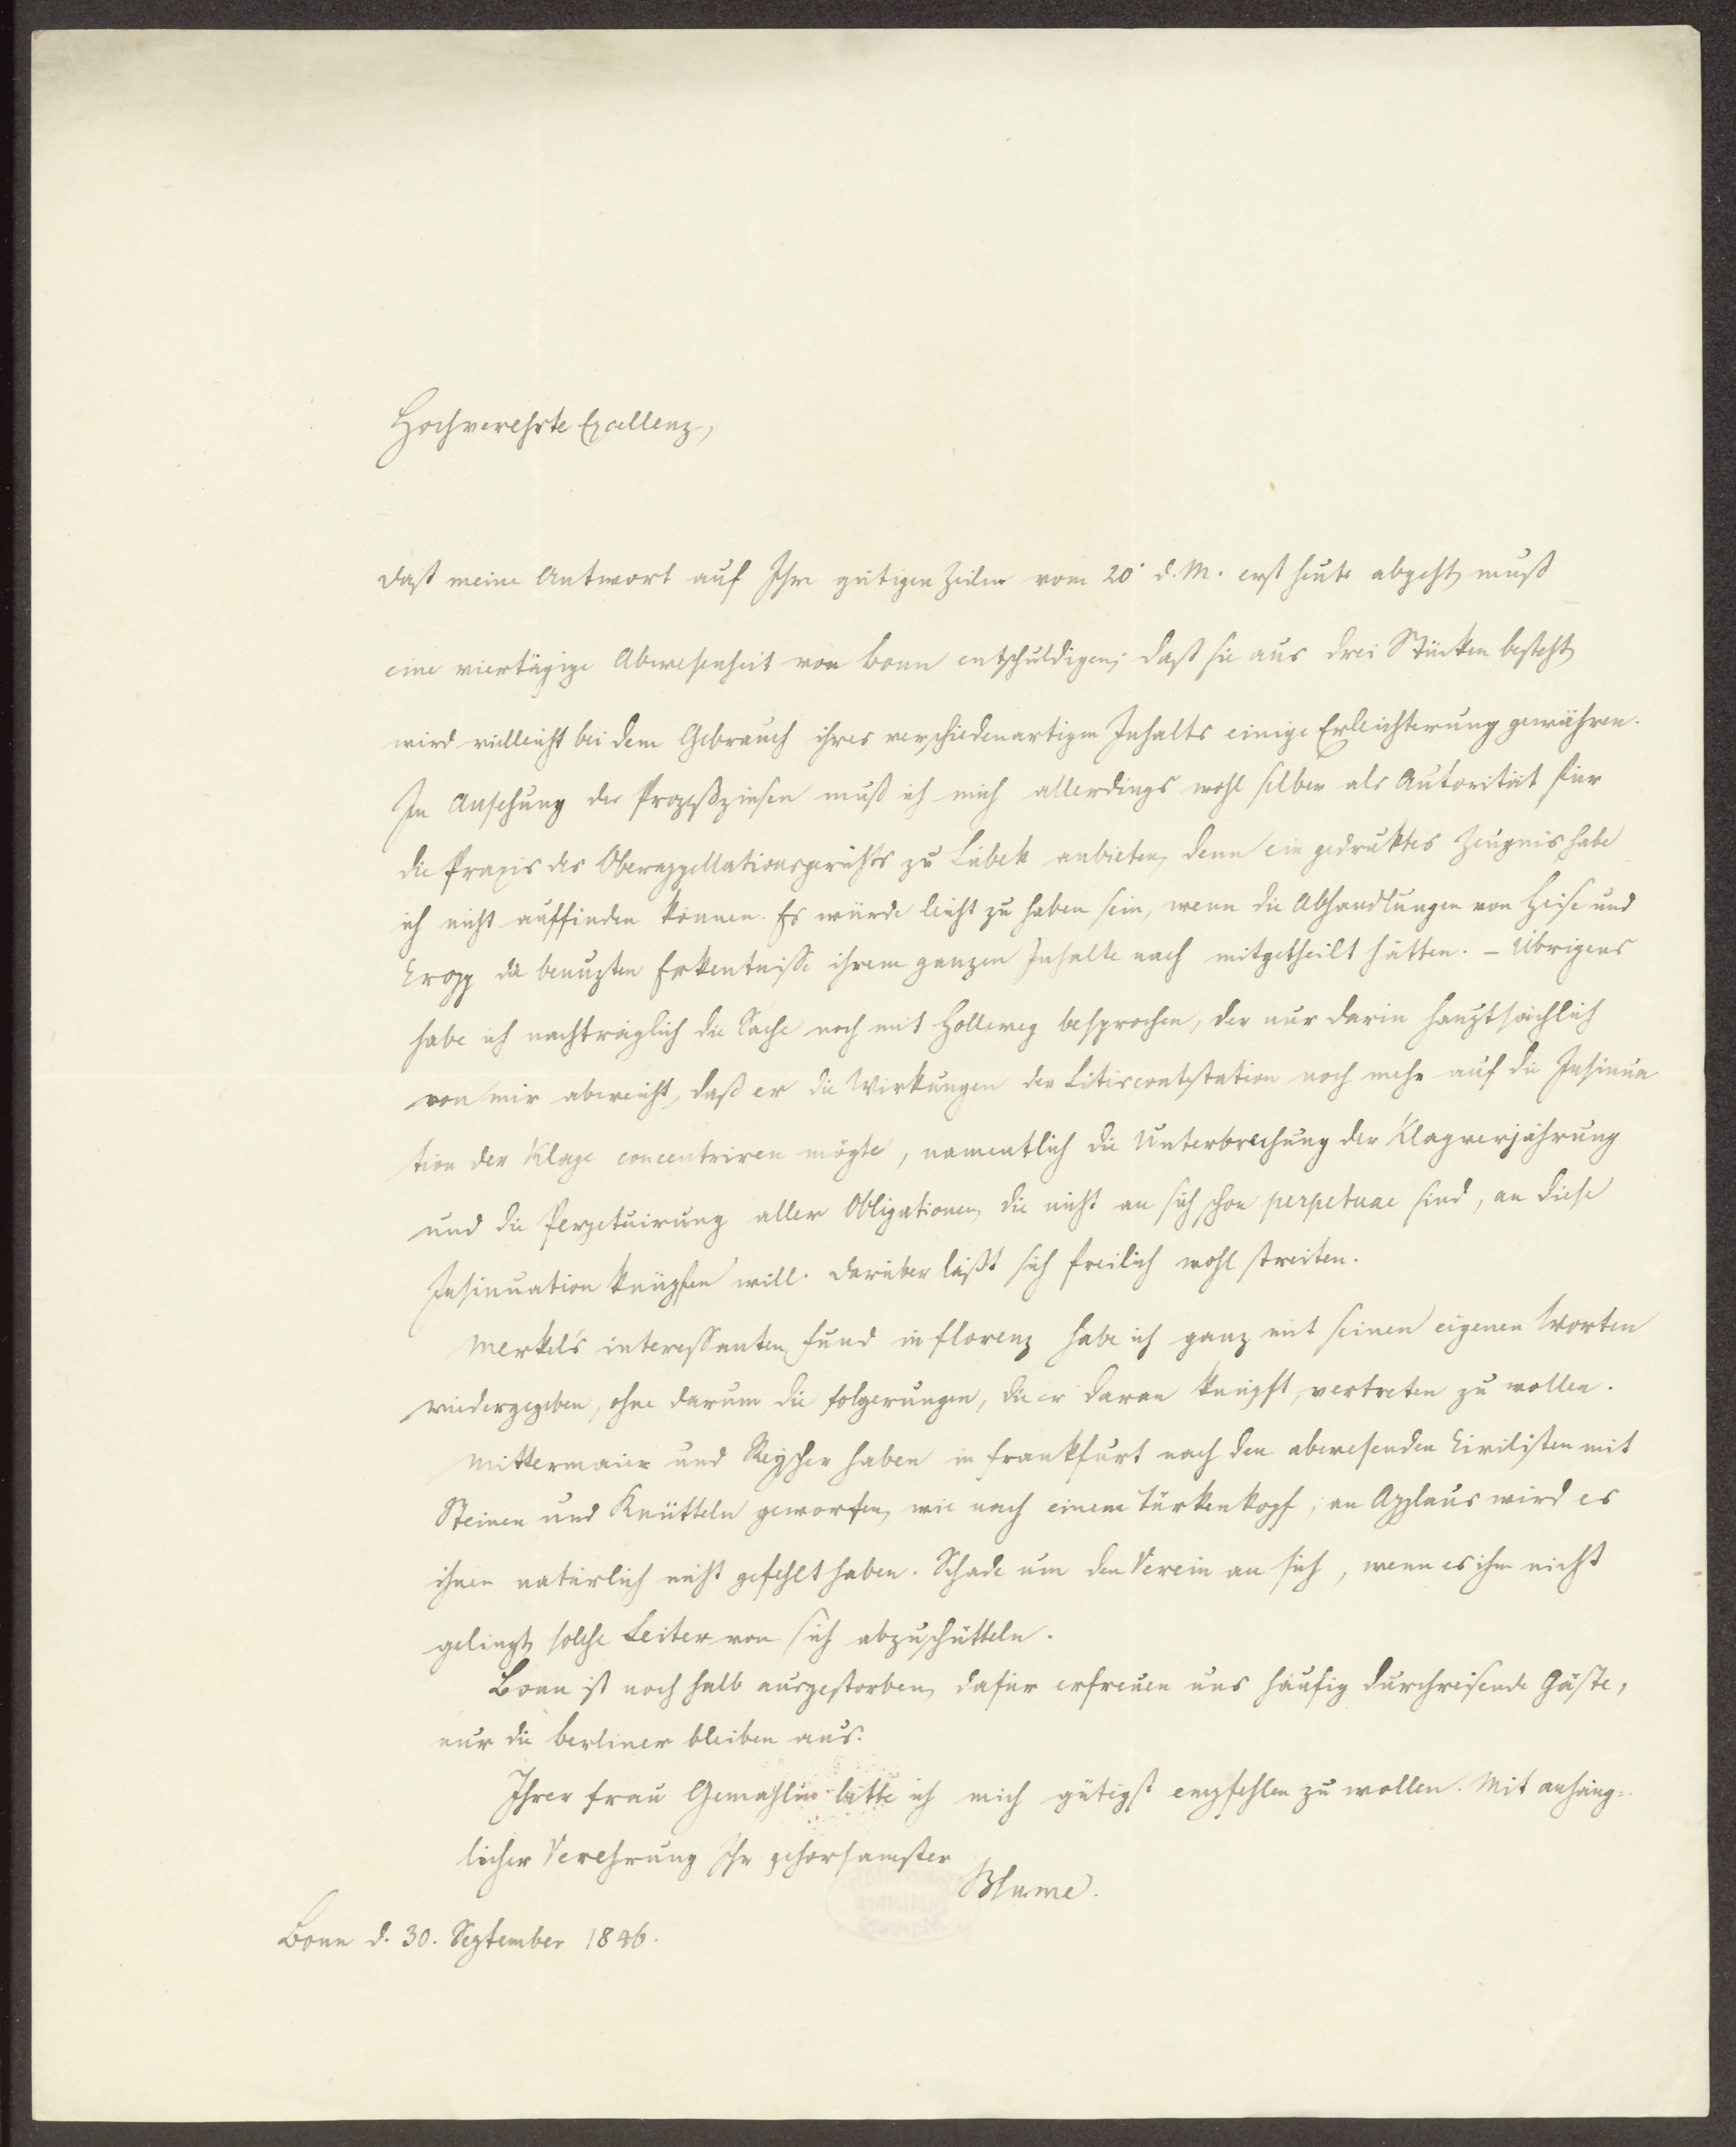 Hochverehrte Excellenz,
daß meine Antwort auf Ihre gütigen Zeilen vom 20. d. M. erst heute abgeht, muß
eine viertägige Abwesenheit von Bonn entschuldigen; daß sie aus drei Stücken besteht,
wird vielleicht bei dem Gebrauch ihres verschiedenartigen Inhalts einige Erleichterung gewähren.
In Ansehung der Prozeßzinsen muß ich mich allerdings wohl selber als Autorität für
die Praxis des Oberappellationsgerichts zu Lübek anbieten, denn ein gedruktes Zeugnis habe
ich nicht auffinden können. Es würde leicht zu haben sein, wenn die Abhandlungen von Heise und
Cropp die benuzten Erkentnisse ihrem ganzen Inhalte nach mitgetheilt hätten. – Übrigens
habe ich nachträglich die Sache noch mit Hollweg besprochen, der nur darin hauptsächlich
von mir abweicht, daß er die Wirkungen der Litiscontestation noch mehr auf die Insinua
tion der Klage concentriren mögte, namentlich die Unterbrechung der Klagverjährung
und die Perpetuirung aller Obligationen, die nicht an sich schon perpetuae sind, an diese
Insinuation knüpfen will. Darüber läßt sich freilich wohl streiten.
Merkel's interessanten Fund in Florenz habe ich ganz mit seinen eigenen Worten
wiedergegeben, ohne darum die Folgerungen, die er daran knüpft, vertreten zu wollen.
Mittermaier und Reyscher haben in Frankfurt nach den abwesenden Civilisten mit
Steinen und Knütteln geworfen, wie nach einem Türkenkopf; an Applaus wird es
ihnen natürlich nicht gefehlt haben. Schade um den Verein an sich, wenn es ihm nicht
gelingt, solche Leiter von sich abzuschütteln.
Bonn ist noch halb ausgestorben, dafür erfreuen uns häufig durchreisende Gäste,
nur die Berliner bleiben aus.
Ihrer Frau Gemahlin bitte ich mich gütigst empfehlen zu wollen. Mit anhäng-
licher Verehrung Ihr gehorsamster
Blume.
Bonn d. 30. September 1846.